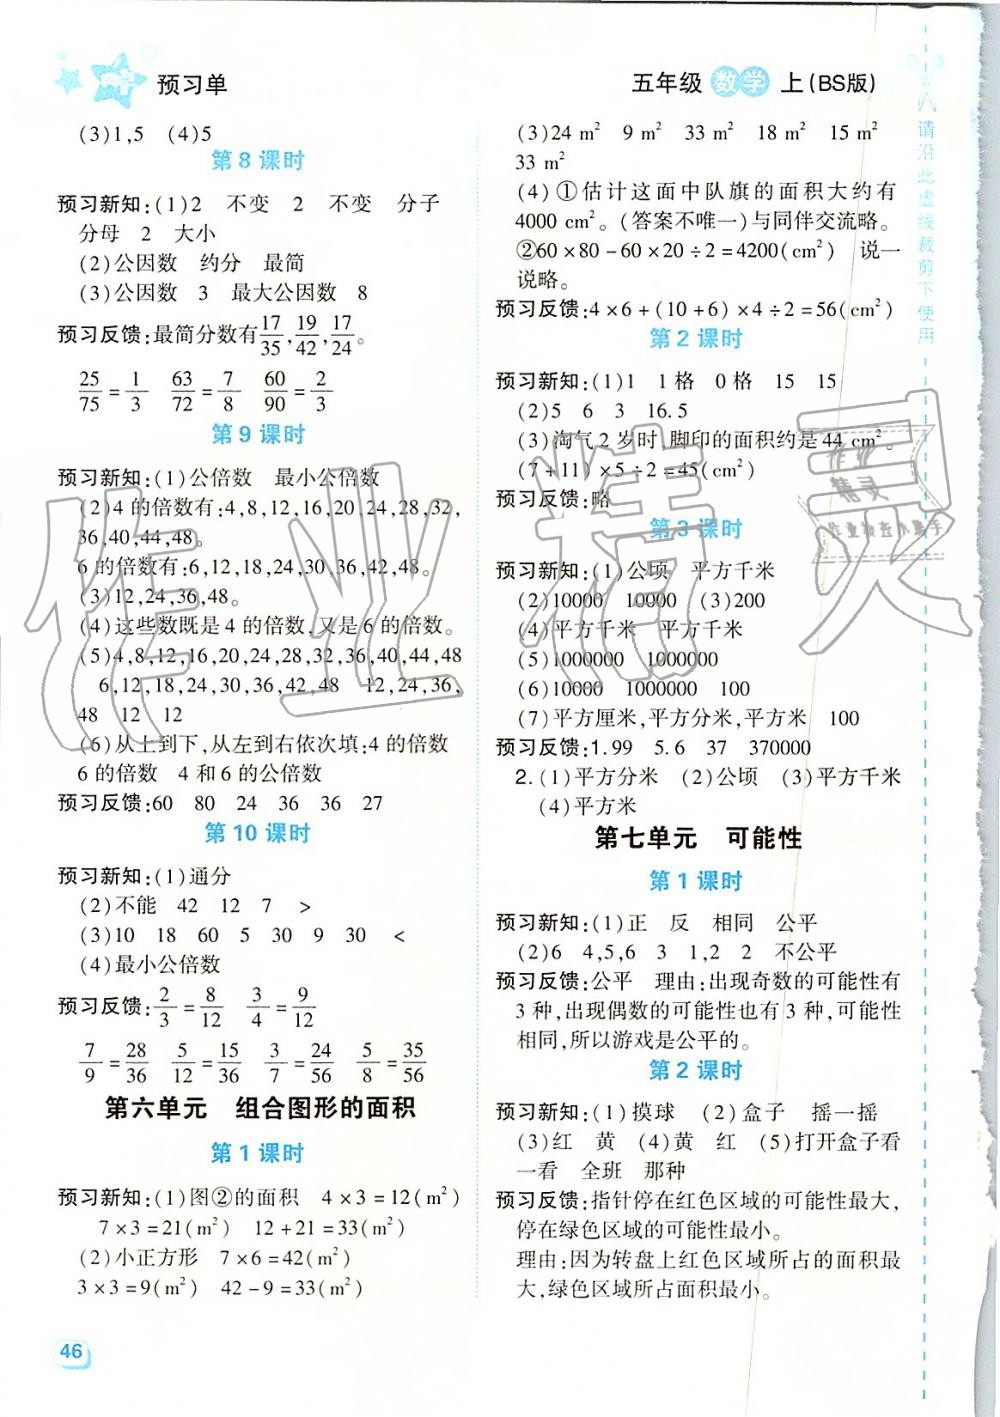 预习单
五年级 数学 上(BS版)
(3)1,5 (4)5
第8课时
预习新知:(1)2 不变 2 不变 分子
分母 2 大小
(2)公因数 约分 最简
(3)公因数 3 最大公因数 8
预习反馈:最简分数有17/35,19/42,17/24。
25/75=1/3 63/72=7/8 60/90=2/3
第9课时
预习新知:(1)公倍数 最小公倍数
(2)4的倍数有:4,8,12,16,20,24,28,32,
36,40,44,48。
6的倍数有:6,12,18,24,30,36,42,48。
(3)12,24,36,48。
(4)这些数既是4的倍数,又是6的倍数。
(5)4,8,12,16,20,24,28,32,36,40,44,48
6,12,18,24,30,36,42,48 12,24,36,
48 12 12
(6)从上到下,从左到右依次填:4的倍数
6的倍数 4和6的公倍数
预习反馈:60 80 24 36 36 27
第10课时
预习新知:(1)通分
(2)不能 42 12 7 >
(3)10 18 60 5 30 9 30 <
(4)最小公倍数
预习反馈:2/3=8/12 3/4=9/12
7/9=28/36 5/12=15/36 3/7=24/56 5/8=35/56
第六单元 组合图形的面积
第1课时
预习新知:(1)图②的面积 4×3=12(m²)
7×3=21(m²) 12+21=33(m²)
(2)小正方形 7×6=42(m²)
3×3=9(m²) 42-9=33(m²)
46
(3)24 m² 9 m² 33 m² 18 m² 15 m²
33 m²
(4)①估计这面中队旗的面积大约有
4000 cm²。(答案不唯一)与同伴交流略。
②60×80-60×20÷2=4200(cm²) 说一
说略。
预习反馈:4×6+(10+6)×4÷2=56(cm²)
第2课时
预习新知:(1)1 1格 0格 15 15
(2)5 6 3 16.5
(3)淘气2岁时,脚印的面积约是44 cm²。
(7+11)×5÷2=45(cm²)
预习反馈:略
第3课时
预习新知:(1)公顷 平方千米
(2)10000 10000 (3)200
(4)平方千米 平方千米
(5)1000000 1000000
(6)10000 1000000 100
(7)平方厘米,平方分米,平方米 100
预习反馈:1.99 5.6 37 370000
2.(1)平方分米 (2)公顷 (3)平方千米
(4)平方米
第七单元 可能性
第1课时
预习新知:(1)正 反 相同 公平
(2)6 4,5,6 3 1,2 2 不公平
预习反馈:公平 理由:出现奇数的可能性有
3种,出现偶数的可能性也有3种,可能性
相同,所以游戏是公平的。
第2课时
预习新知:(1)摸球 (2)盒子 摇一摇
(3)红 黄 (4)黄 红 (5)打开盒子看
一看 全班 那种
预习反馈:指针停在红色区域的可能性最大,
停在绿色区域的可能性最小。
理由:因为转盘上红色区域所占的面积最
大,绿色区域所占面积最小。
请沿此虚线裁剪下使用
作业精灵
作业
精灵
作业检查小助手